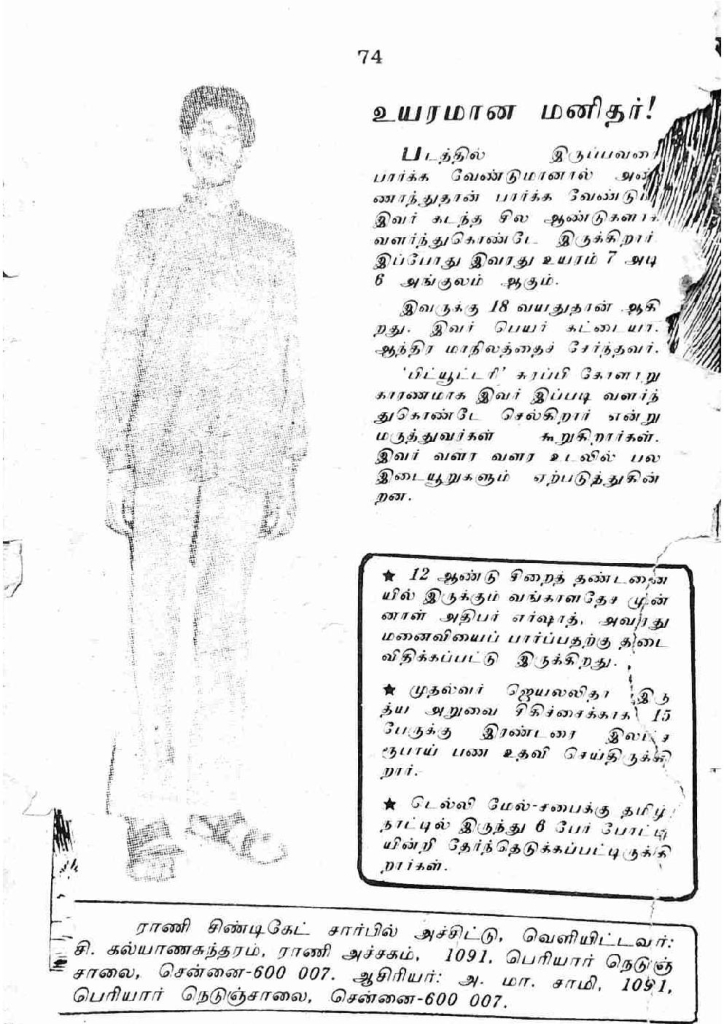 74
உயரமான மனிதர்!
படத்தில் இருப்பவரை
பார்க்க வேண்டுமானால் அண்
ணாந்துதான் பார்க்க வேண்டும்.
இவர் கடந்த சில ஆண்டுகளாக
வளர்ந்துகொண்டே இருக்கிறார்.
இப்போது இவரது உயரம் 7 அடி
6 அங்குலம் ஆகும்.
இவருக்கு 18 வயதுதான் ஆகி
றது. இவர் பெயர் கட்டையா.
ஆந்திர மாநிலத்தைச் சேர்ந்தவர்.
'பிட்யூட்டரி' சுரப்பி கோளாறு
காரணமாக இவர் இப்படி வளர்ந்
துகொண்டே செல்கிறார் என்று
மருத்துவர்கள் கூறுகிறார்கள்.
இவர் வளர வளர உடலில் பல
இடையூறுகளும் ஏற்படுத்துகின்
றன.
★ 12 ஆண்டு சிறைத் தண்டனை
யில் இருக்கும் வங்காளதேச முன்
னாள் அதிபர் எர்ஷாத், அவரது
மனைவியைப் பார்ப்பதற்கு தடை
விதிக்கப்பட்டு இருக்கிறது.
★ முதல்வர் ஜெயலலிதா இரு
தய அறுவை சிகிச்சைக்காக 15
பேருக்கு இரண்டரை இலட்ச
ரூபாய் பண உதவி செய்திருக்கி
றார்.
★ டெல்லி மேல்-சபைக்கு தமிழ்
நாட்டில் இருந்து 6 பேர் போட்டி
யின்றி தேர்ந்தெடுக்கப்பட்டிருக்கி
றார்கள்.
ராணி சிண்டிகேட் சார்பில் அச்சிட்டு, வெளியிட்டவர்:
சி. கல்யாணசுந்தரம், ராணி அச்சகம், 1091, பெரியார் நெடுஞ்
சாலை, சென்னை-600 007. ஆசிரியர்: அ. மா. சாமி, 1091,
பெரியார் நெடுஞ்சாலை, சென்னை-600 007.